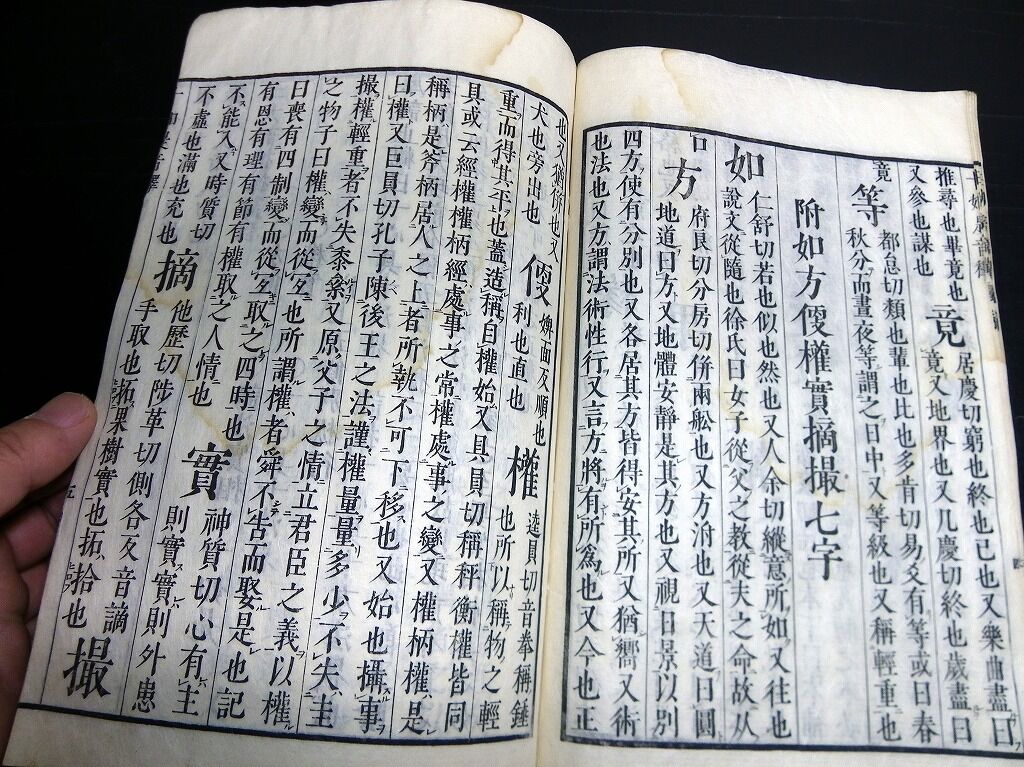 推尋也畢竟也竟居慶切窮也終也已也又樂曲盡曰
又參也謀也竟又地界也又几慶切終也歲盡曰
竟等都怠切類也輩也比也多肯切易爻有等或曰春
秋分而晝夜等謂之日中又等級也又稱輕重也
附如方㑰權實摘撮七字
如仁舒切若也似也然也又人余切縱意所如又往也
說文從隨也徐氏曰女子從父之教從夫之命故从
口方府良切分房切併兩舩也又方泭也又天道曰圓
地道曰方又地體安靜是其方也又視日景以別
四方使有分別也又各居其方皆得安其所又猶嚮又術
也法也又方謂法術性行又言方將有所爲也又今也正
也又猶併也又㑰面反順也權逵員切音拳稱錘
大也旁出也利也直也也所以稱物之輕
重而得其平也蓋造稱自權始又具員切稱秤衡權皆同
具或云經權權柄經處事之常權處事之變又權柄權是
稱柄是斧柄居人之上者所執不可下移也又始也攝事
曰權又巨員切孔子陳後王之法謹權量量多少不失圭
撮權輕重者不失黍絫又原父子之情立君臣之義以權
之物子曰權變而從宐也所謂權者舜不告而娶是也記
曰喪有四制變而從宐取之四時也
有恩有理有節有權取之人情也實神質切心有主
不能入又時質切則實實則外患
不虛也滿也充也摘他歷切陟革切側各夊音謫
手取也拓果樹實也拓拾也撮
五